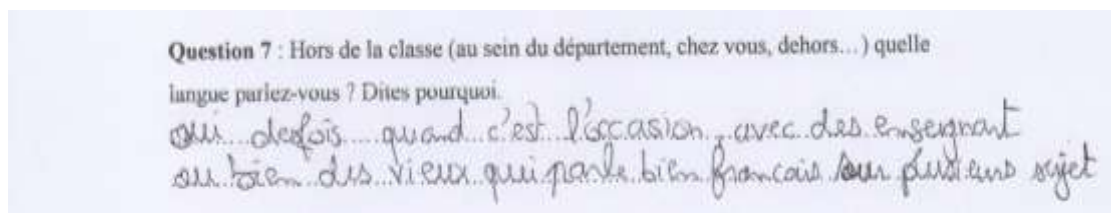 Question 7 : Hors de la classe (au sein du département, chez vous, dehors…) quelle
langue parlez-vous ? Dites pourquoi.
oui desfois quand c'est l'occasion, avec des enseignant
ou bien des vieux qui parle bien francais sur plusieurs sujet